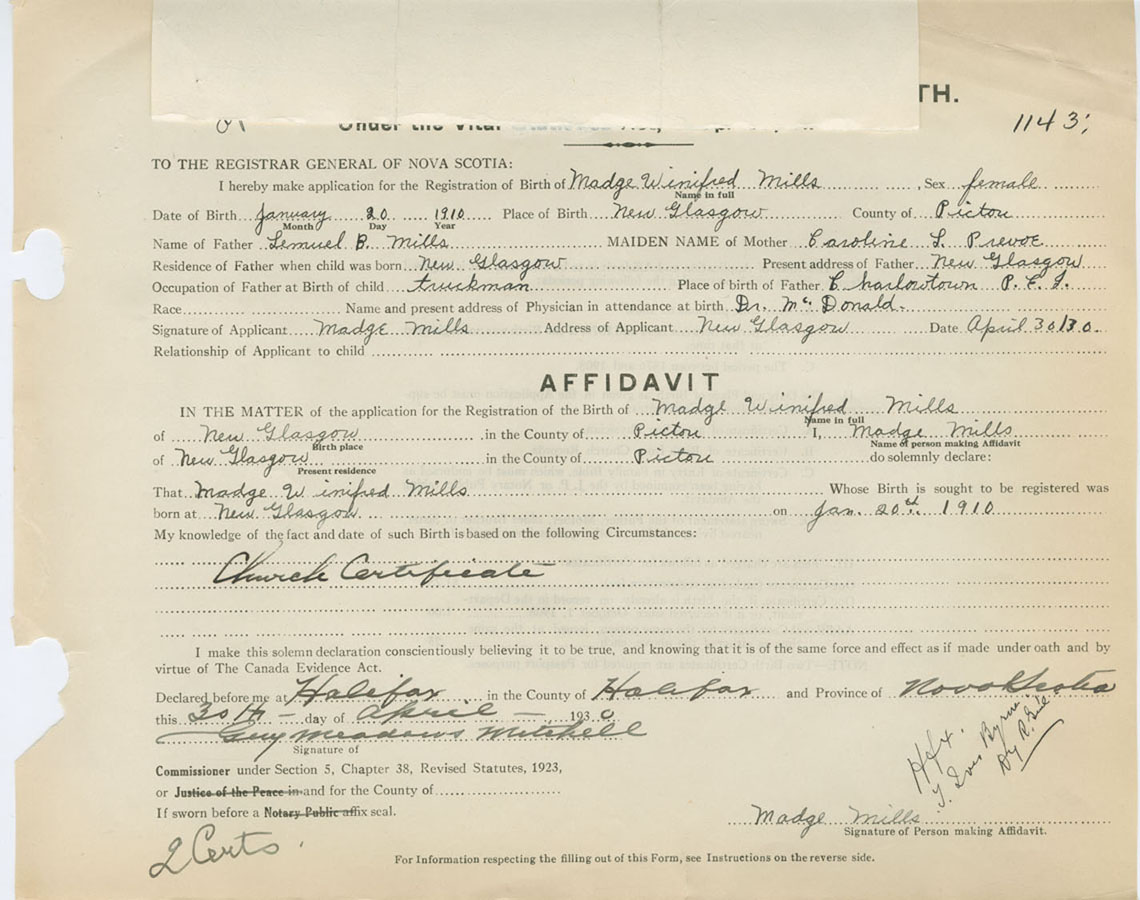 TH.
1143;
Under the Vital
TO THE REGISTRAR GENERAL OF NOVA SCOTIA:
I hereby make application for the Registration of Birth of Madge Winifred Mills, Sex female
Name in full
Date of Birth January 20 1910 Place of Birth New Glasgow County of Pictou
Month Day Year
Name of Father Lemuel B. Mills MAIDEN NAME of Mother Caroline L. Prevoe
Residence of Father when child was born New Glasgow Present address of Father New Glasgow
Occupation of Father at Birth of child truckman Place of birth of Father Charlowtown P.E.I.
Race Name and present address of Physician in attendance at birth Dr. McDonald.
Signature of Applicant Madge Mills Address of Applicant New Glasgow Date April 30/30.
Relationship of Applicant to child
AFFIDAVIT
IN THE MATTER of the application for the Registration of the Birth of Madge Winifred Mills
Name in full
of New Glasgow in the County of Pictou I, Madge Mills
Birth place Name of person making Affidavit
of New Glasgow in the County of Pictou do solemnly declare:
Present residence
That Madge Winifred Mills Whose Birth is sought to be registered was
born at New Glasgow on Jan. 20th. 1910
My knowledge of the fact and date of such Birth is based on the following Circumstances:
Church Certificate
I make this solemn declaration conscientiously believing it to be true, and knowing that it is of the same force and effect as if made under oath and by
virtue of The Canada Evidence Act.
Declared before me at Halifax in the County of Halifax and Province of Nova Scotia
this 30th day of April 1930
Guy Meadows Mitchell
Signature of
Commissioner under Section 5, Chapter 38, Revised Statutes, 1923,
or Justice of the Peace in and for the County of
If sworn before a Notary Public affix seal.
Hfx.
Madge Mills
Signature of Person making Affidavit.
2 Certs.
For Information respecting the filling out of this Form, see Instructions on the reverse side.